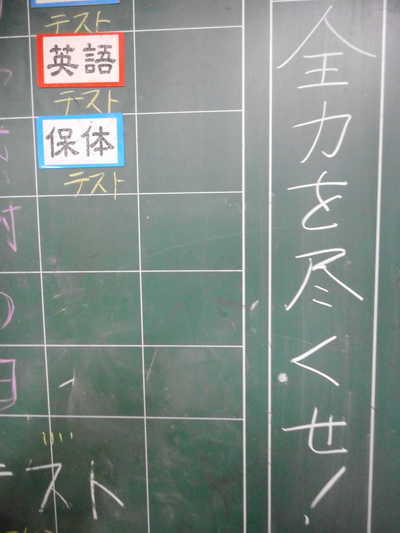 全力を尽くせ!
テスト
英語
テスト
保体
テスト
の
テスト